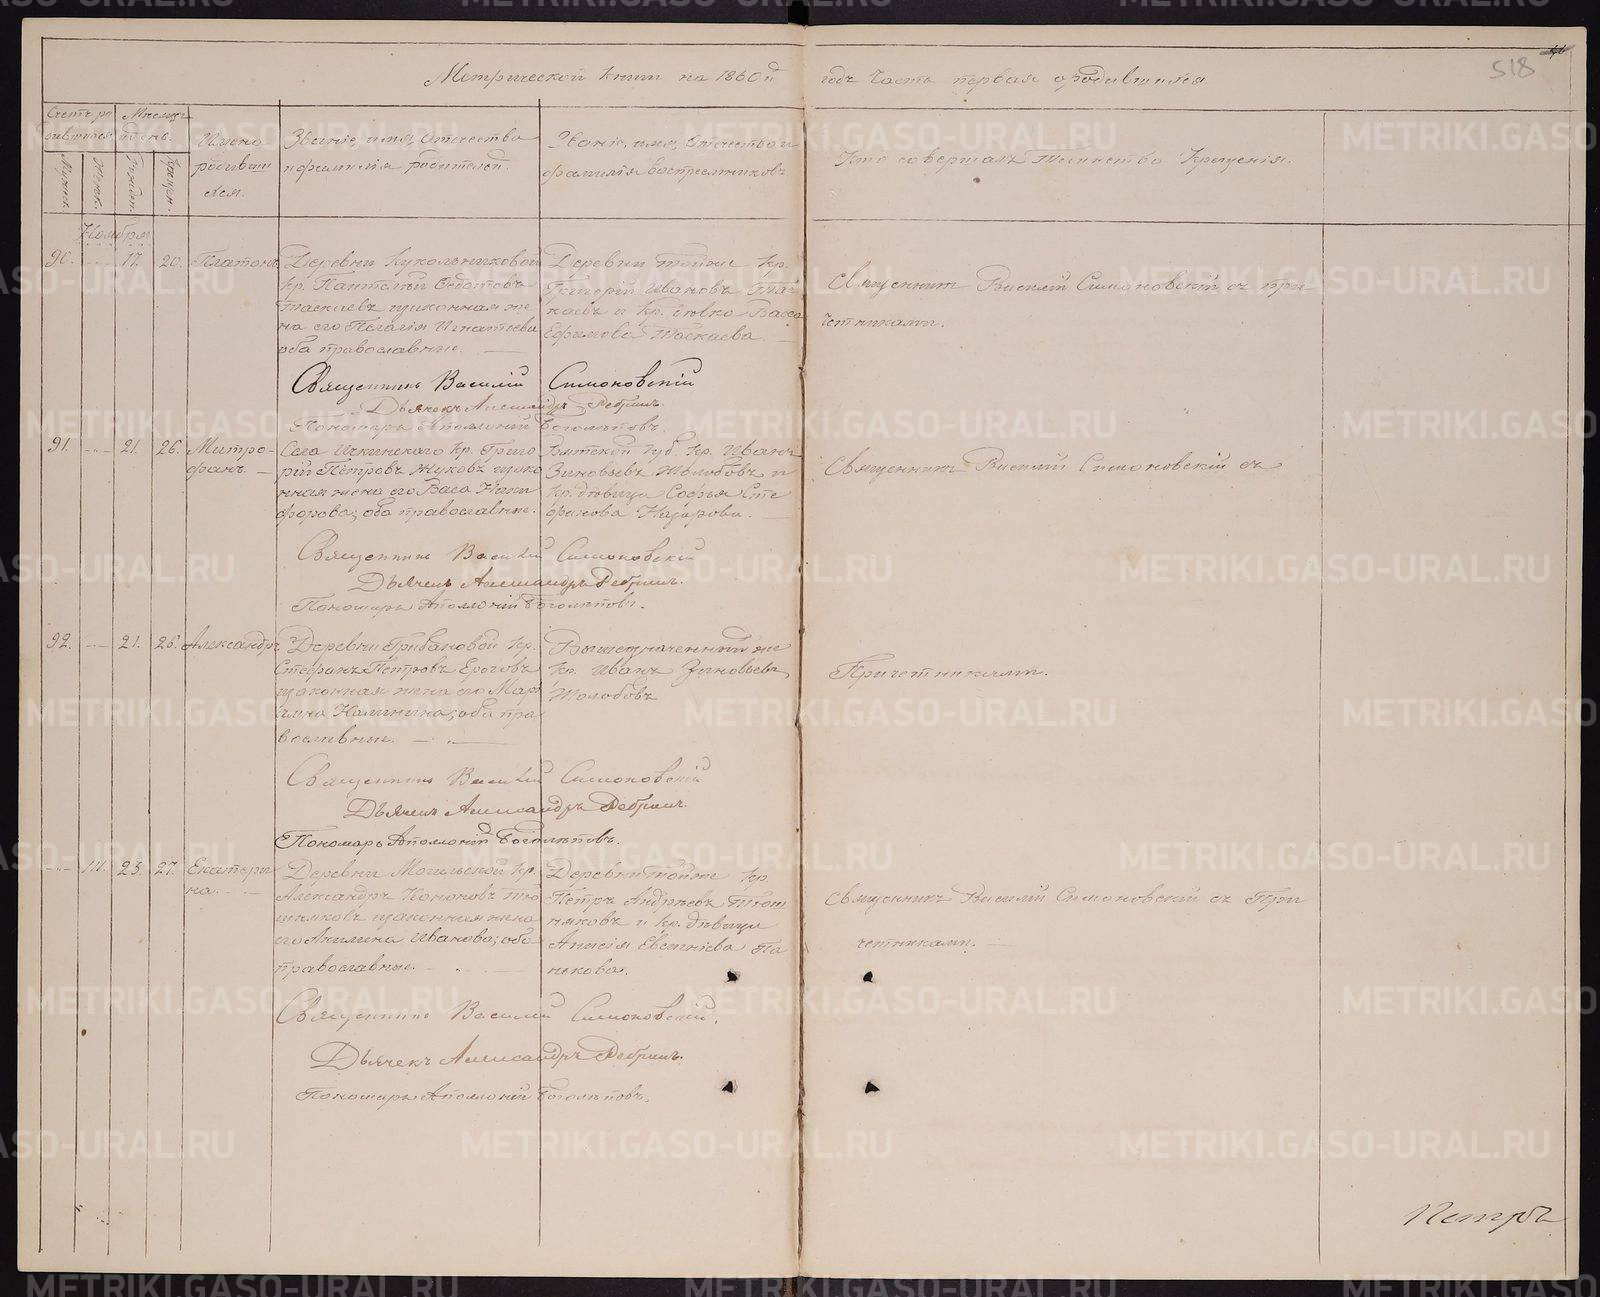 Метрической книги на 1860й годъ Часть первая о родившихся
518
Счетъ ро
дившихся
Мѣсяцъ
и день.
Мужеск.
Женск.
Рожден.
Крещен.
Имена
родивши
хся.
Званіе, имя, отечество
и фамилія родителей.
Званіе, имя, отечество и
фамилія воспріемниковъ
Кто совершалъ таинство крещенія.
Ноября
90. 17. 20. Платонъ
Деревни Кукольниковой
кр. Пантелѣй Федотовъ
Таскаевъ и законная же
на его Пелагія Игнатіева
оба православные.
Деревни тойже кр.
Григорій Ивановъ Тас
каевъ и кр. дѣвка Васса
Ефимова Таскаева.
Священникъ Василій Симоновскій съ при
четниками.
Священникъ Василій Симоновскій
Дьячекъ Александръ Ребринъ.
Пономарь Аполлоній Боголѣповъ.
91. 21. 26. Митро-
фанъ.
Села Ичкинскаго кр. Григо
рій Петровъ Жуковъ и зако
нная жена его Васа Ники
форова; оба православные.
Вятской губ. кр. Иванъ
Зиновьевъ Жолобовъ и
кр. дѣвица Софья Сте
фанова Назарова.
Священникъ Василій Симоновскій съ
Священникъ Василій Симоновскій
Дьячекъ Александръ Ребринъ.
Пономарь Аполлоній Боголѣповъ.
92. 21. 26. Александръ
Деревни Грибановой кр.
Стефанъ Петровъ Ероговъ
и законная жена его Мар
іамна Калинина; оба пра
вославные.
Вышезначенный же
кр. Иванъ Зиновьевъ
Жолобовъ
Причетниками.
Священникъ Василій Симоновскій
Дьячекъ Александръ Ребринъ.
Пономарь Аполлоній Боголѣповъ.
25. 27. Екатери
на.
Деревни Могильской кр.
Александръ Кононовъ Тю
шняковъ и законная жена
его Акилина Иванова; оба
православные.
Деревни тойже кр.
Петръ Андреевъ Тюш
няковъ и кр. дѣвица
Анисія Евгеніева Па
нькова.
Священникъ Василій Симоновскій съ При
четниками.
Священникъ Василій Симоновскій.
Дьячекъ Александръ Ребринъ.
Пономарь Аполлоній Боголѣповъ.
Петръ
METRIKI.GASO-URAL.RU